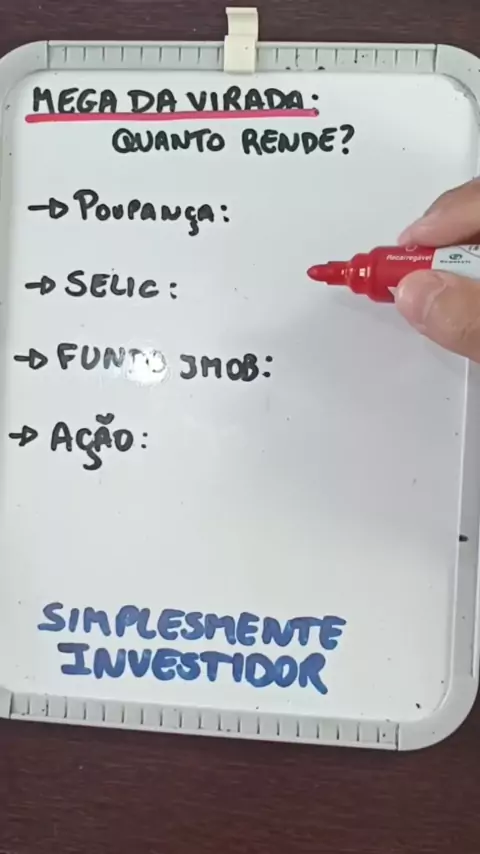 MEGA DA VIRADA:
QUANTO RENDE?
→ POUPANÇA:
→ SELIC:
→ FUNDO IMOB:
→ AÇÃO:
Recarregável
SIMPLESMENTE
INVESTIDOR